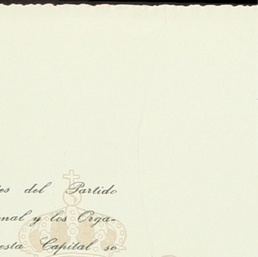 del Partido
y los Orga-
esta Capital se